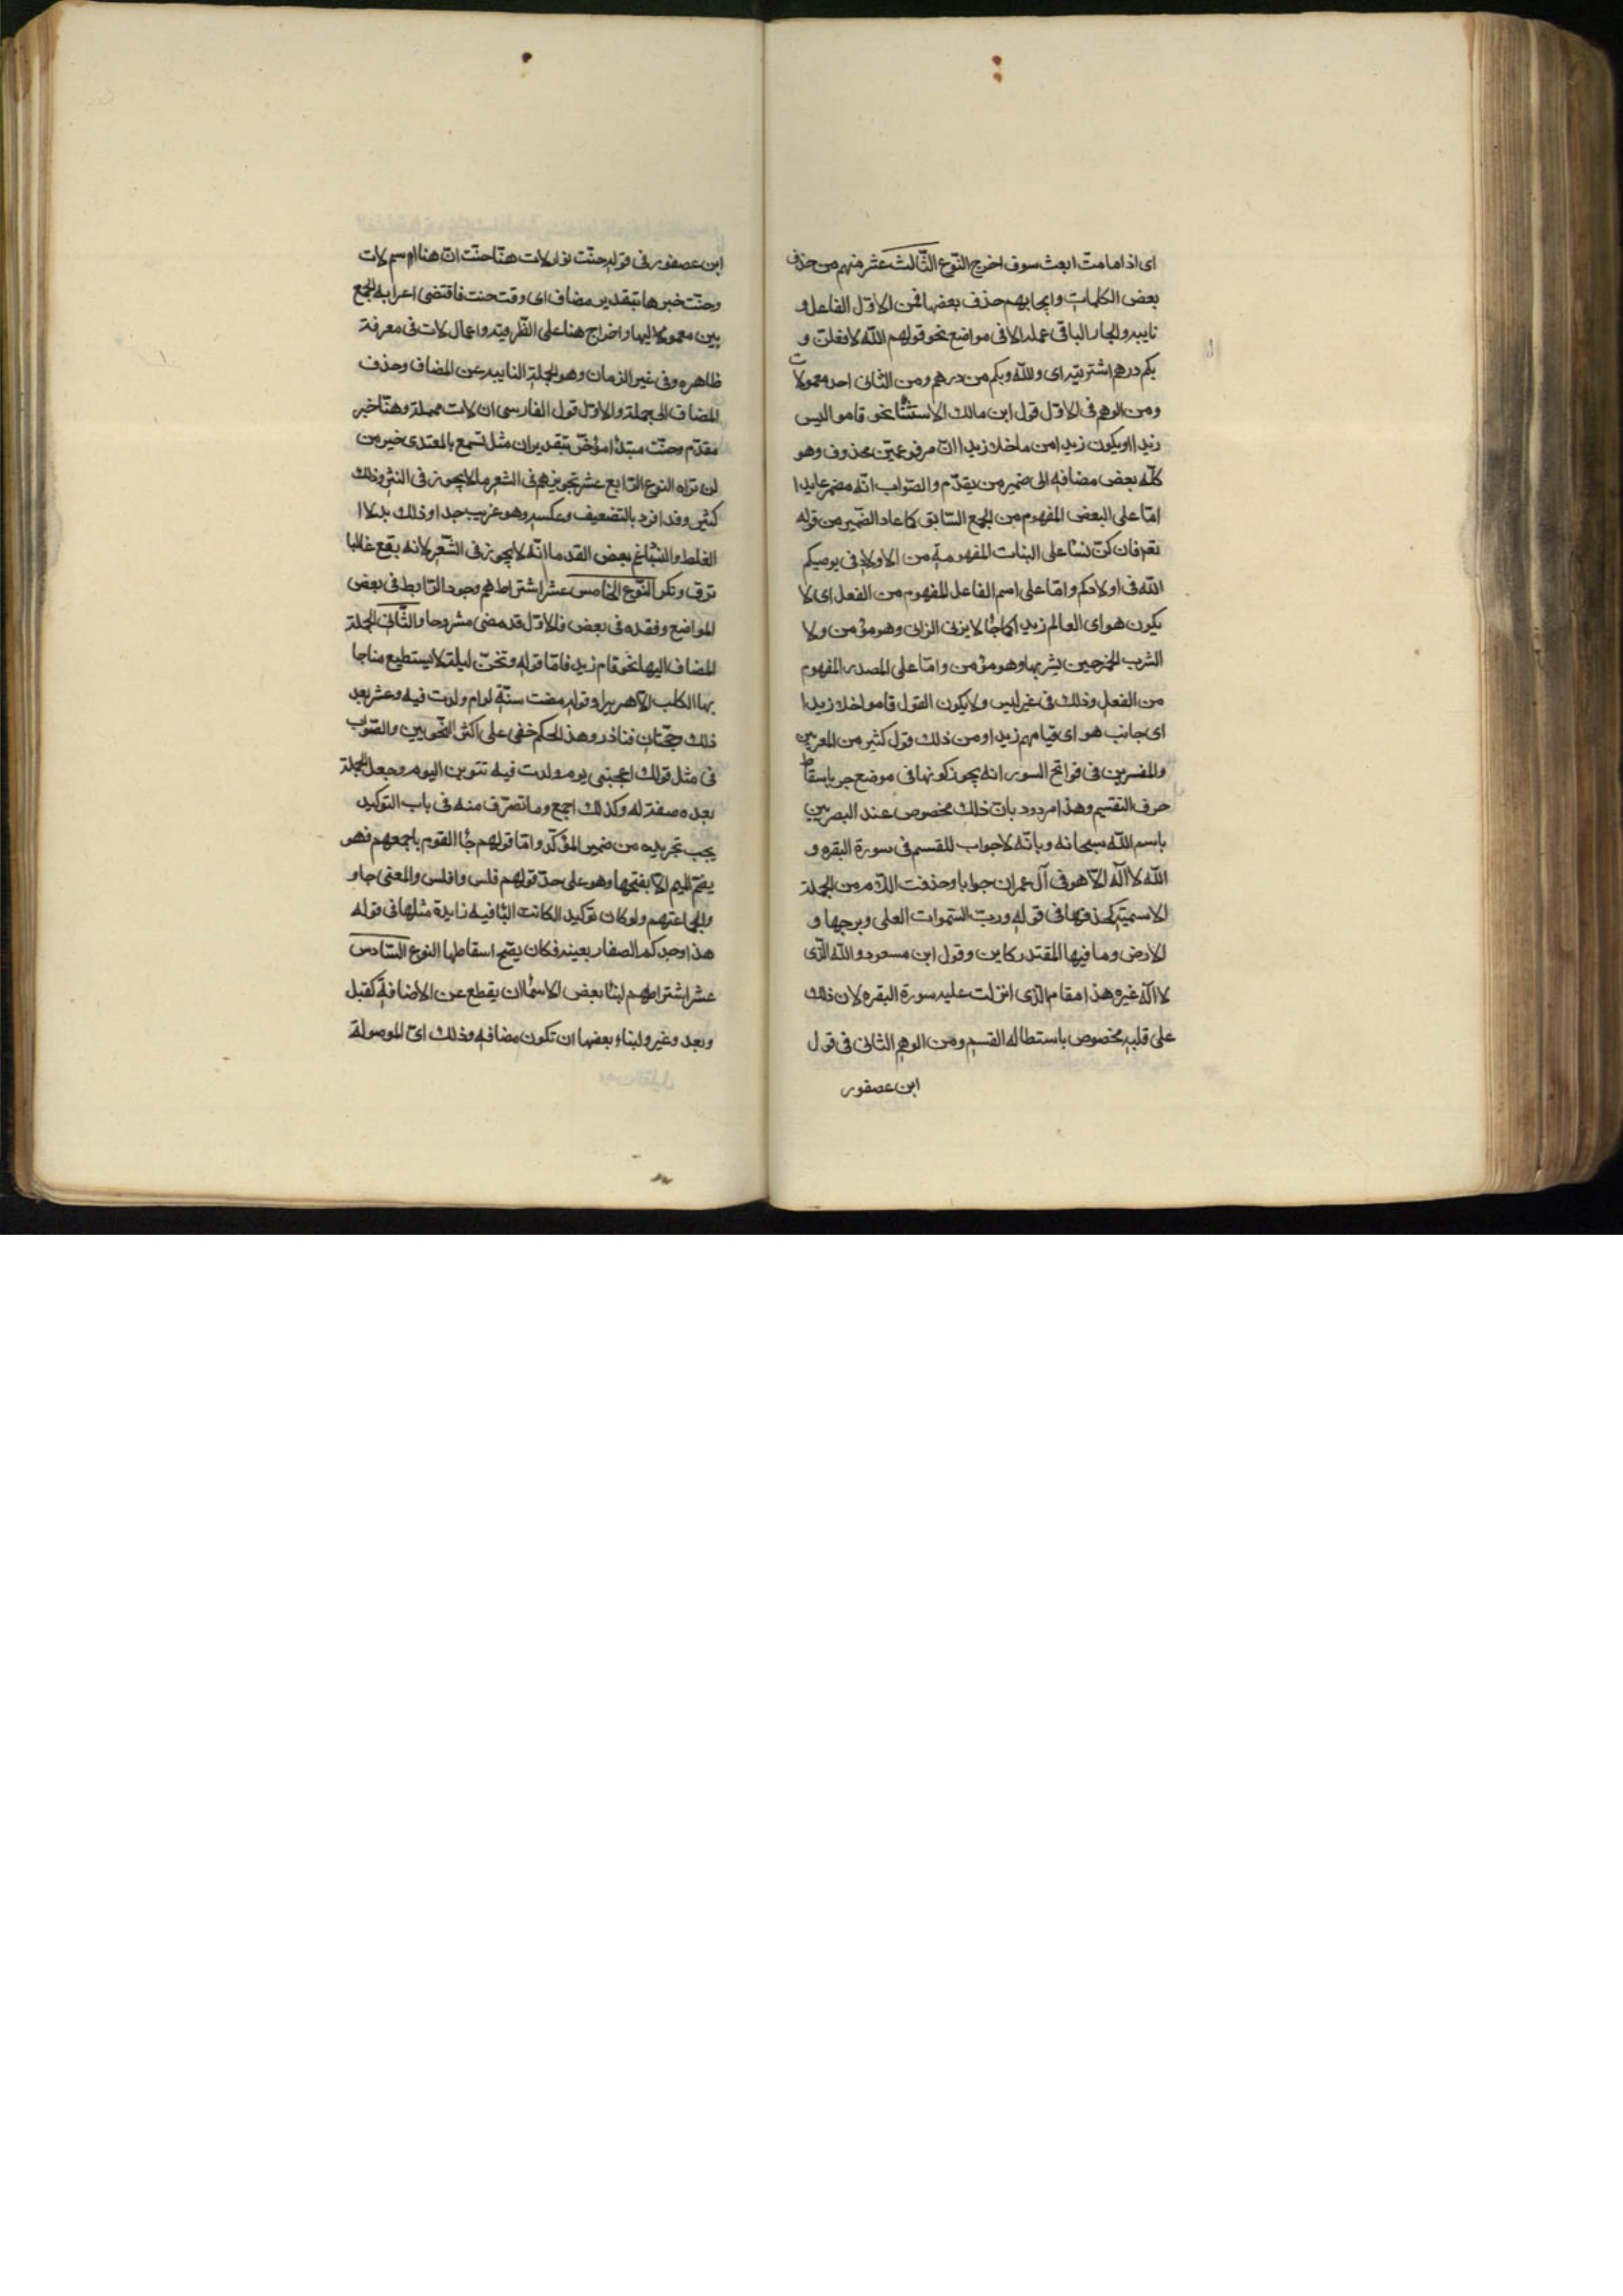 اى اذا ما مت ابعث سوف اخرج النّوع الثّالث عشر منهم من حذف
بعض الكلمات وايجابهم حذف بعضها فمن الاوّل الفاعل و
نايبه والجار الباقى عمله الا فى مواضع نحو قولهم اللّه لافعلنّ و
بكم درهم اشتريته اى واللّه وبكم من درهم ومن الثانى احد معمولات
ومن الوهم فى الاوّل قول ابن مالك الاستثنا نحو قاموا ليس
زيدا او يكون زيدا من ما خلا زيدا انّ مرفوعهن محذوف وهو
كلّه بعض مضافه الى ضمير من يقدّم والصّواب انّه مضمر عايدا
امّا على البعض المفهوم من الجمع السّابق كما عاد الضّمير من قوله
تعر فان كنّ نسا على البنات المفهومة من الاولاد فى يوصيكم
اللّه فى اولادكم وامّا على اسم الفاعل المفهوم من الفعل اى لا
يكون هو اى العالم زيدا كما جا لا يزنى الزانى وهو مؤمن ولا
الشرب الخمر حين يشربها وهو مؤمن وامّا على المصدر المفهوم
من الفعل وذلك فى غير ليس ولا يكون القول قاموا خلا زيدا
اى جانب هو اى قيامهم زيدا ومن ذلك قول كثير من المعربين
والمفسرين فى فواتح السور انه يجوز كونها فى موضع جر باسقاط
حرف القسم وهذا مردود بانّ ذلك مخصوص عند البصريين
باسم اللّه سبحانه وبانّه لا جواب للقسم فى سورة البقره و
اللّه لا آله الّا هو فى آل عمران جوابا وحذفت اللام من الجملة
الاسميّة كحذفها فى قوله وربّ السّموات العلى وبرجها و
الارض وما فيها المقتدر كاين وقول ابن مسعود واللّه الّذى
لا آله غيره هذا مقام الّذى انزلت عليه سورة البقره لان ذلك
على قلبه مخصوص باستطاله القسم ومن الوهم الثانى فى قول
ابن عصفور
ابن عصفور فى قوله حنّت نوار لات هنّا حنّت انّ هنا اسم لات
وحنّت خبرها بتقدير مضاف اى وقت حنت فاقتضى اعرابه الجمع
بين معموليها واخراج هنا على الظّرفيّه واعمال لات فى معرفة
ظاهره وفى غير الزمان وهو الجملة النايبه عن المضاف وحذف
المضاف الى جملة والاوّل قول الفارسى ان لات مهملة وهنّا خبر
مقدّم وحنّت مبتدا مؤخّر بتقدير ان مثل تسمع بالمعتدى خير من
ان تراه النوع الرّابع عشر تجويزهم فى الشعر ما لا يجوز فى النثر وذلك
كثير وقد افرد بالتضعيف وعكسه وهو غريب جدا وذلك بدلا ا
الغلط والنّسيا زعم بعض القدما انّه لا يجوز فى الشّعر لانه يقع غالبا
تروّ وفكر النّوع الخامس عشر اشتراطهم وجود الرّابط فى بعض
المواضع وفقده فى بعض فالاوّل قد مضى مشروحا والثّانى الجملة
المضاف اليها نحو قام زيد فامّا قوله وتخنّ ليلة لا يستطيع مناجا
بها الكلب الّا هريرا وقوله مضت سنة لوام ولدت فيه وعشر بعد
ذلك وحجّتان فناذر وهذ الحكم خفى على اكثر النّحويين والصّواب
فى مثل قولك اعجبنى يوم ولدت فيه تنوين اليوم وجعل الجملة
بعده صفة له وكذلك اجمع وما تصرّف منه فى باب التوكيد
يجب تجريده من ضمير المؤكّد وامّا قولهم جا القوم باجمعهم فهو
بضمّ الميم الا بفتحها وهو على حدّ قولهم فلس وافلس والمعنى جاو
والجماعتهم ولو كان توكيد الكانت البا فيه زايدة مثلها فى قوله
هذا وجدكم الصفار بعينه فكان يصحّ اسقاطها النوع السّادس
عشر اشتراطهم لبنا بعض الاسما ان يقطع عن الاضافة كقبل
وبعد وغير ولبناء بعضها ان تكون مضافه وذلك اىّ الموصولة